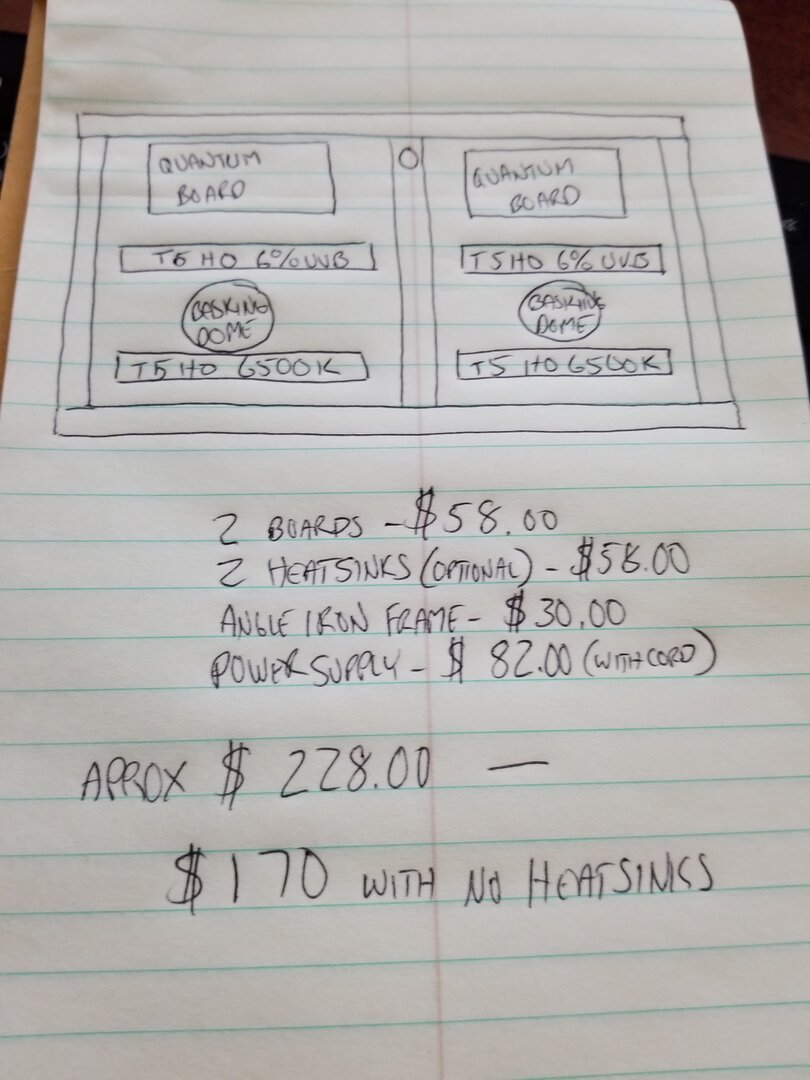 QUANTUM
BOARD
T5 HO 6% UVB
BASKING
DOME
T5 HO 6500K
O
QUANTUM
BOARD
T5 HO 6% UVB
BASKING
DOME
T5 HO 6500K
2 BOARDS - $58.00
2 HEATSINKS (OPTIONAL) - $58.00
ANGLE IRON FRAME - $30.00
POWER SUPPLY - $82.00 (WITH CORD)
APROX $228.00 —
$170 WITH NO HEATSINKS